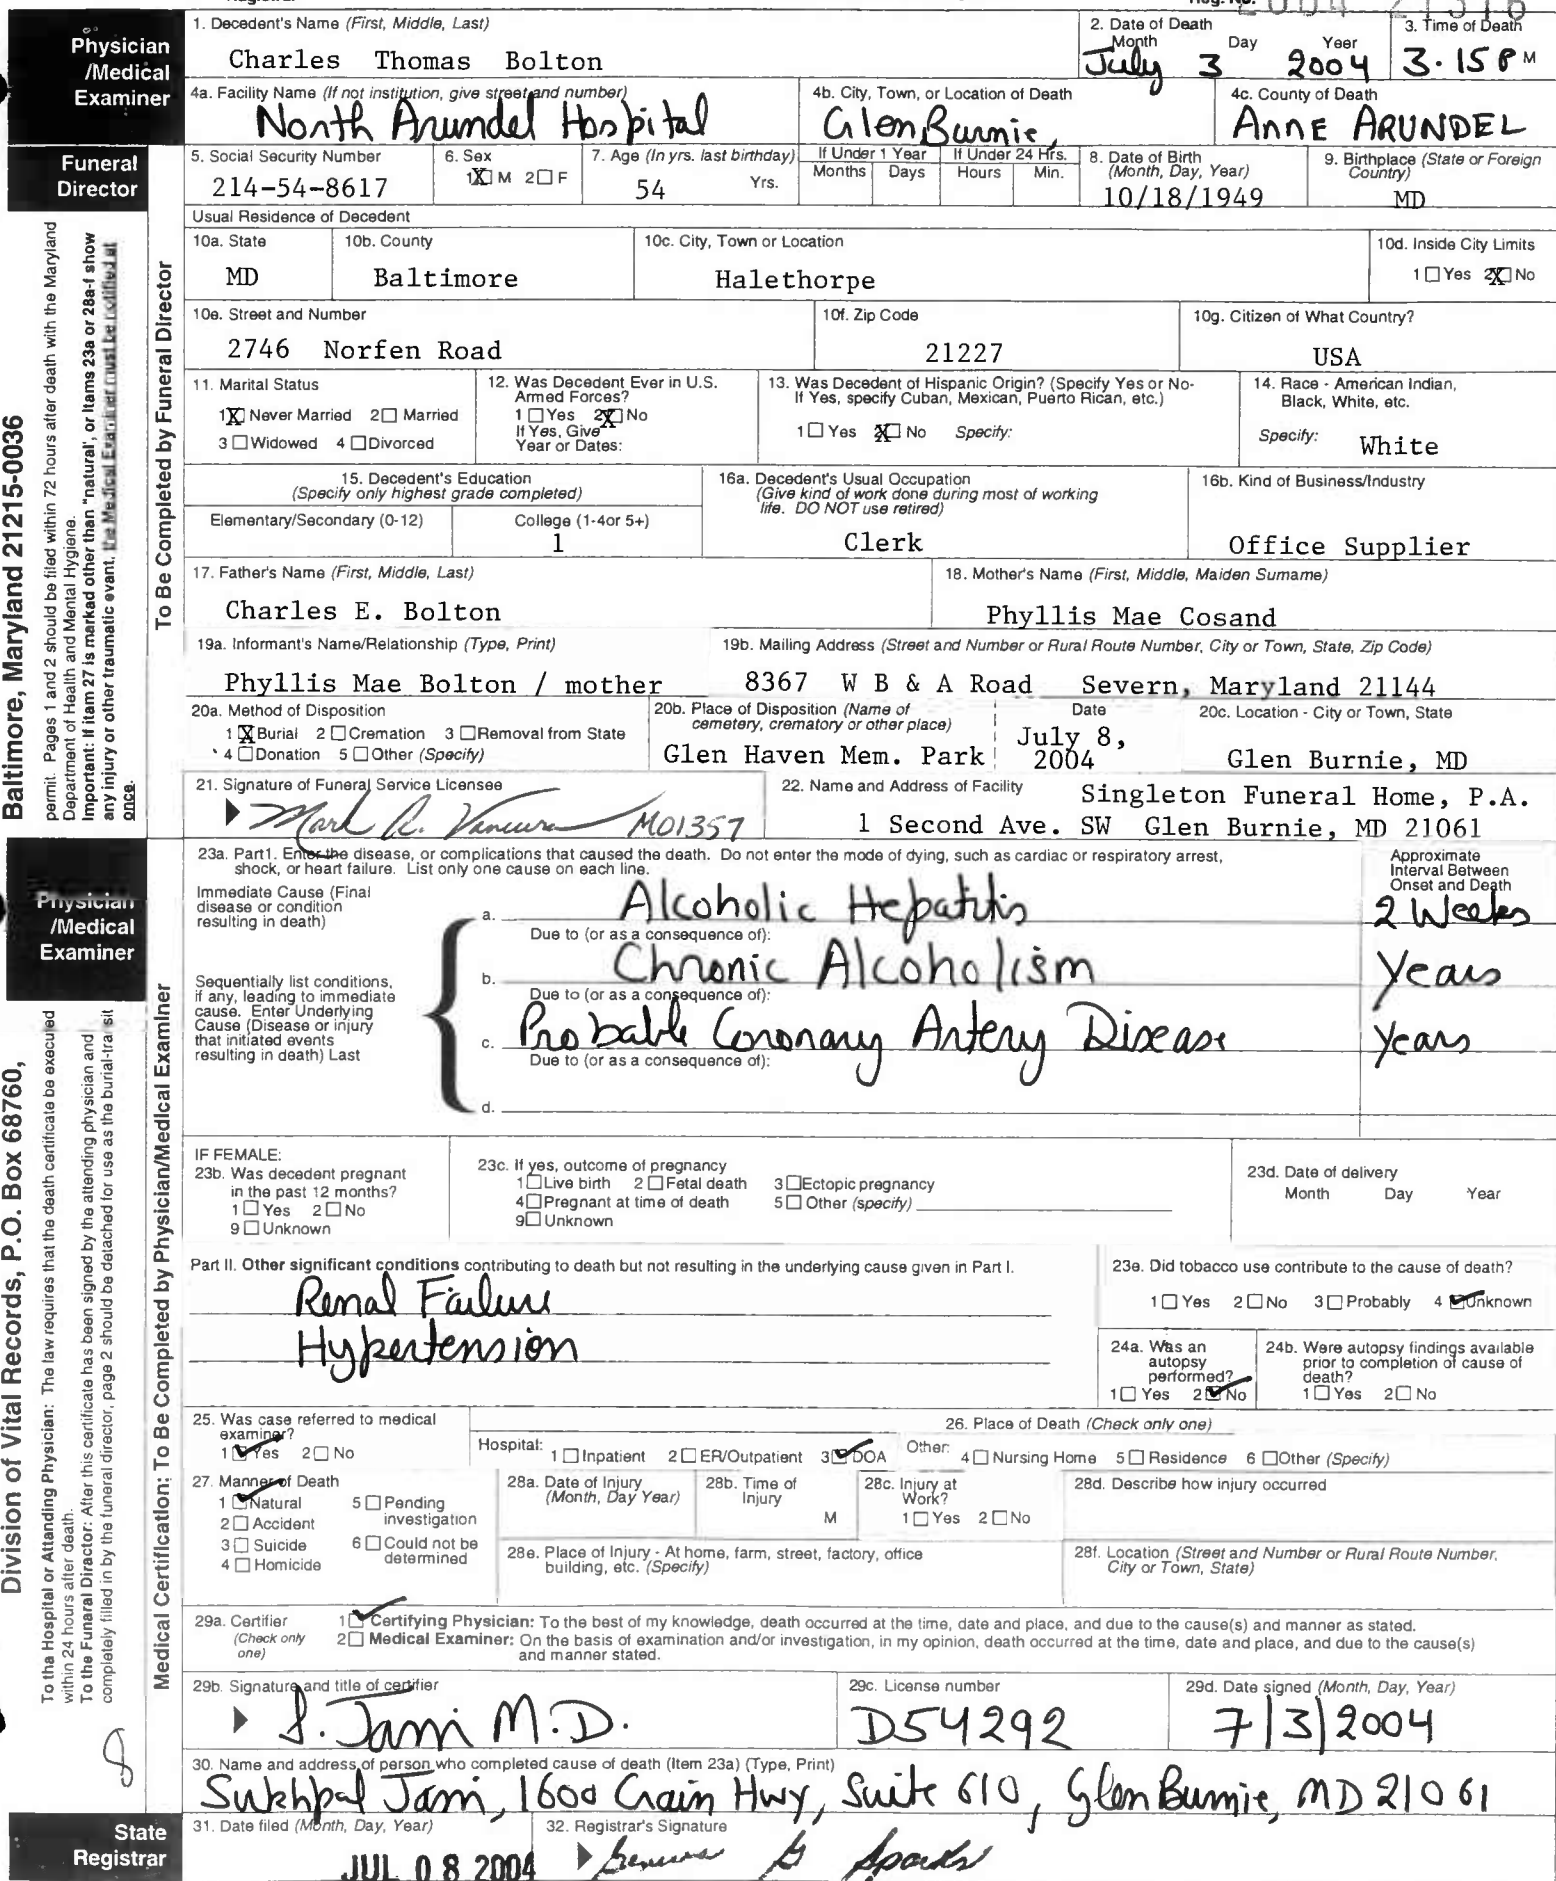 Physician /Medical Examiner
1. Decedent's Name (First, Middle, Last)
Charles Thomas Bolton
2. Date of Death
Month Day Year
July 3 2004
3. Time of Death
3.15 P M
4a. Facility Name (If not institution, give street and number)
North Arundel Hospital
4b. City, Town, or Location of Death
Glen Burnie,
4c. County of Death
ANNE ARUNDEL
Funeral Director
5. Social Security Number
214-54-8617
6. Sex
1 X M 2 ☐ F
7. Age (In yrs. last birthday)
54 Yrs.
If Under 1 Year
Months Days
If Under 24 Hrs.
Hours Min.
8. Date of Birth (Month, Day, Year)
10/18/1949
9. Birthplace (State or Foreign Country)
MD
Usual Residence of Decedent
10a. State
MD
10b. County
Baltimore
10c. City, Town or Location
Halethorpe
10d. Inside City Limits
1 ☐ Yes 2 X No
10e. Street and Number
2746 Norfen Road
10f. Zip Code
21227
10g. Citizen of What Country?
USA
11. Marital Status
1 X Never Married 2 ☐ Married
3 ☐ Widowed 4 ☐ Divorced
12. Was Decedent Ever in U.S. Armed Forces?
1 ☐ Yes 2 X No
If Yes, Give
Year or Dates:
13. Was Decedent of Hispanic Origin? (Specify Yes or No-
If Yes, specify Cuban, Mexican, Puerto Rican, etc.)
1 ☐ Yes X No Specify:
14. Race - American Indian, Black, White, etc.
Specify: White
15. Decedent's Education
(Specify only highest grade completed)
Elementary/Secondary (0-12)
College (1-4or 5+)
1
16a. Decedent's Usual Occupation
(Give kind of work done during most of working
life. DO NOT use retired)
Clerk
16b. Kind of Business/Industry
Office Supplier
17. Father's Name (First, Middle, Last)
Charles E. Bolton
18. Mother's Name (First, Middle, Maiden Surname)
Phyllis Mae Cosand
19a. Informant's Name/Relationship (Type, Print)
Phyllis Mae Bolton / mother
19b. Mailing Address (Street and Number or Rural Route Number, City or Town, State, Zip Code)
8367 W B & A Road Severn, Maryland 21144
20a. Method of Disposition
1 X Burial 2 ☐ Cremation 3 ☐ Removal from State
4 ☐ Donation 5 ☐ Other (Specify)
20b. Place of Disposition (Name of
cemetery, crematory or other place)
Glen Haven Mem. Park
Date
July 8,
2004
20c. Location - City or Town, State
Glen Burnie, MD
21. Signature of Funeral Service Licensee
Mark R. Vancura M01357
22. Name and Address of Facility
Singleton Funeral Home, P.A.
1 Second Ave. SW Glen Burnie, MD 21061
To Be Completed by Funeral Director
Baltimore, Maryland 21215-0036
permit. Pages 1 and 2 should be filed within 72 hours after death with the Maryland
Department of Health and Mental Hygiene.
Important: If item 27 is marked other than "natural", or items 23a or 28a-f show
any injury or other traumatic event, the Medical Examiner must be notified at
once.
Physician /Medical Examiner
23a. Part1. Enter the disease, or complications that caused the death. Do not enter the mode of dying, such as cardiac or respiratory arrest,
shock, or heart failure. List only one cause on each line.
Approximate Interval Between Onset and Death
Immediate Cause (Final
disease or condition
resulting in death)
a. Alcoholic Hepatitis
2 Weeks
Due to (or as a consequence of):
Sequentially list conditions,
if any, leading to immediate
cause. Enter Underlying
Cause (Disease or injury
that initiated events
resulting in death) Last
b. Chronic Alcoholism
Years
Due to (or as a consequence of):
c. Probable Coronary Artery Disease
Years
Due to (or as a consequence of):
d.
IF FEMALE:
23b. Was decedent pregnant
in the past 12 months?
1 ☐ Yes 2 ☐ No
9 ☐ Unknown
23c. If yes, outcome of pregnancy
1 ☐ Live birth 2 ☐ Fetal death 3 ☐ Ectopic pregnancy
4 ☐ Pregnant at time of death 5 ☐ Other (specify)
9 ☐ Unknown
23d. Date of delivery
Month Day Year
Part II. Other significant conditions contributing to death but not resulting in the underlying cause given in Part I.
Renal Failure
Hypertension
23e. Did tobacco use contribute to the cause of death?
1 ☐ Yes 2 ☐ No 3 ☐ Probably 4 ✓ Unknown
24a. Was an autopsy performed?
1 ☐ Yes 2 ✓ No
24b. Were autopsy findings available
prior to completion of cause of
death?
1 ☐ Yes 2 ☐ No
25. Was case referred to medical
examiner?
1 ✓ Yes 2 ☐ No
26. Place of Death (Check only one)
Hospital: 1 ☐ Inpatient 2 ☐ ER/Outpatient 3 ✓ DOA Other: 4 ☐ Nursing Home 5 ☐ Residence 6 ☐ Other (Specify)
27. Manner of Death
1 ✓ Natural 5 ☐ Pending investigation
2 ☐ Accident
3 ☐ Suicide 6 ☐ Could not be determined
4 ☐ Homicide
28a. Date of Injury (Month, Day Year)
28b. Time of Injury
M
28c. Injury at Work?
1 ☐ Yes 2 ☐ No
28d. Describe how injury occurred
28e. Place of Injury - At home, farm, street, factory, office
building, etc. (Specify)
28f. Location (Street and Number or Rural Route Number,
City or Town, State)
29a. Certifier
(Check only one)
1 ✓ Certifying Physician: To the best of my knowledge, death occurred at the time, date and place, and due to the cause(s) and manner as stated.
2 ☐ Medical Examiner: On the basis of examination and/or investigation, in my opinion, death occurred at the time, date and place, and due to the cause(s)
and manner stated.
29b. Signature and title of certifier
S. Jami M.D.
29c. License number
D54292
29d. Date signed (Month, Day, Year)
7/3/2004
30. Name and address of person who completed cause of death (Item 23a) (Type, Print)
Sukhpal Jami, 1600 Crain Hwy, Suite 610, Glen Burnie, MD 21061
Medical Certification: To Be Completed by Physician/Medical Examiner
Division of Vital Records, P.O. Box 68760,
To the Hospital or Attending Physician: The law requires that the death certificate be executed
within 24 hours after death.
To the Funeral Director: After this certificate has been signed by the attending physician and
completely filled in by the funeral director, page 2 should be detached for use as the burial-transit
8
State Registrar
31. Date filed (Month, Day, Year)
JUL 08 2004
32. Registrar's Signature
Sparks